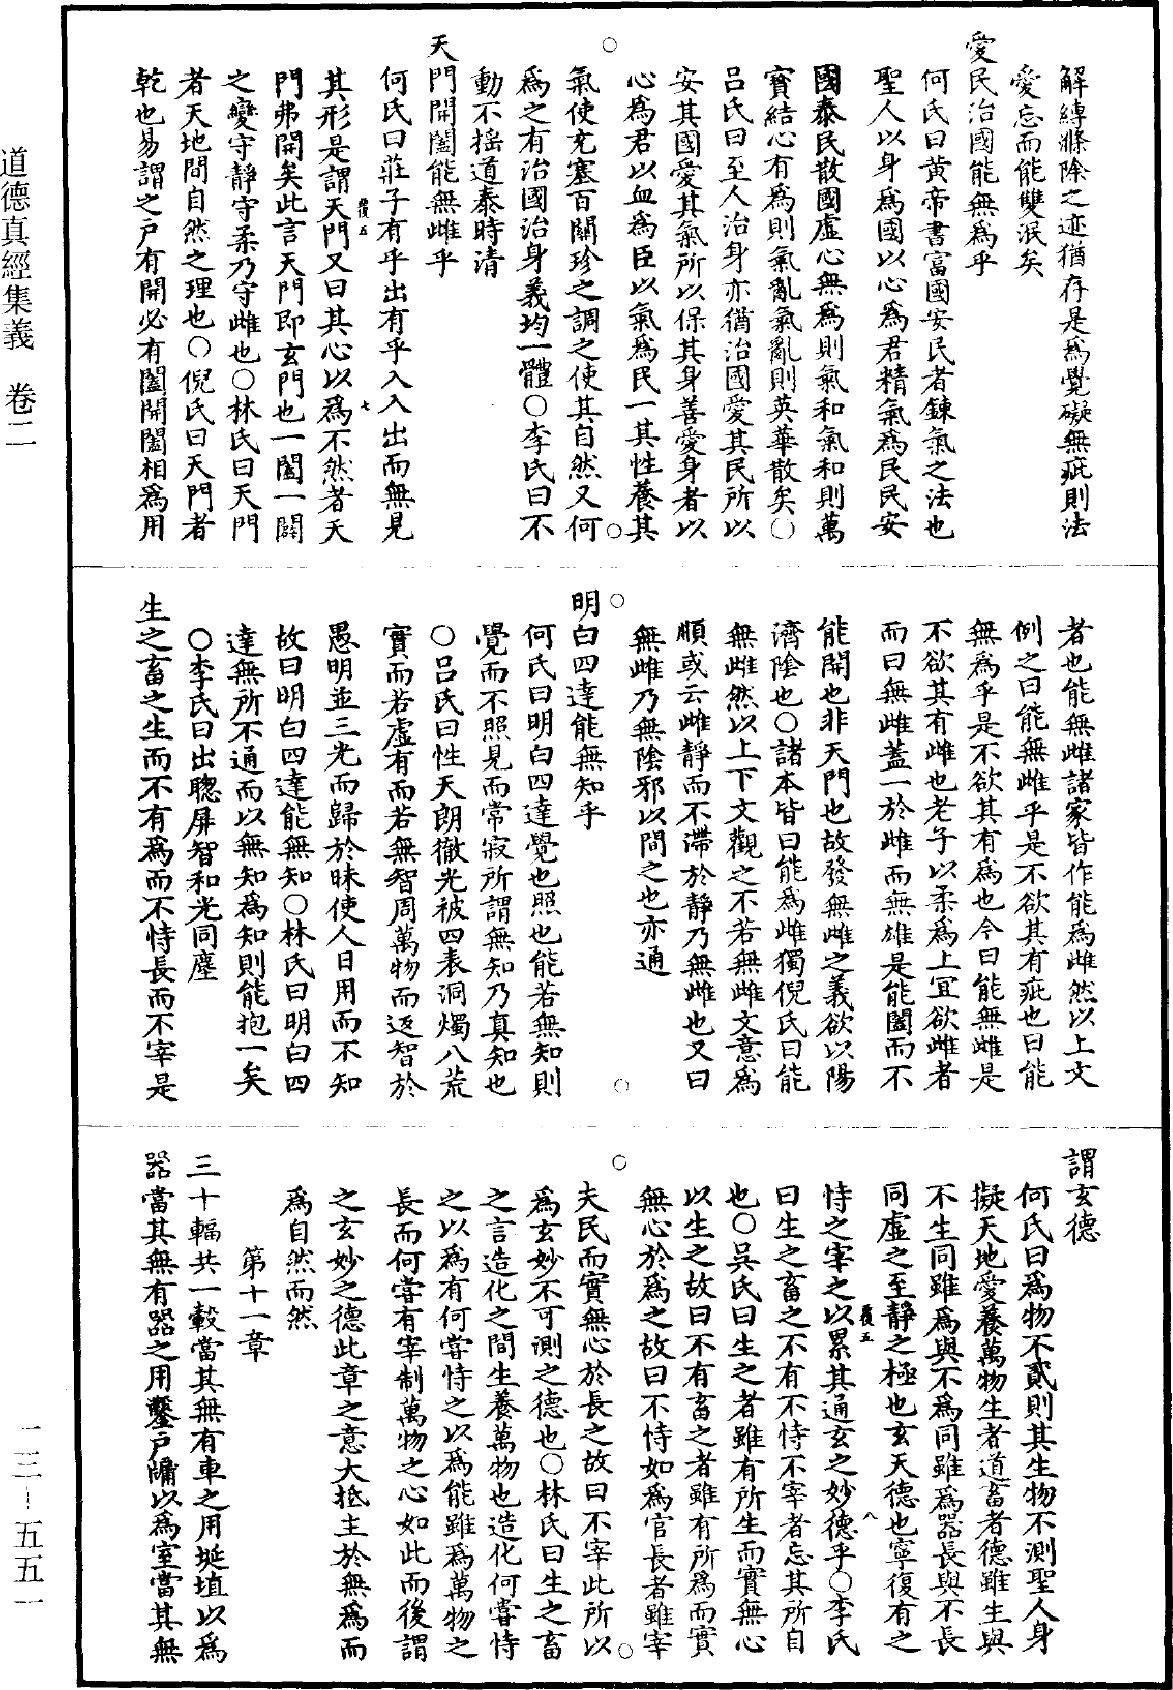 解縛滌除之迹猶存是爲覺礙無疵則法
愛忘而能雙泯矣
愛民治國能無爲乎
何氏曰黄帝書富國安民者鍊氣之法也
聖人以身爲國以心爲君精氣爲民民安
國泰民散國虛心無爲則氣和氣和則萬
寳結心有爲則氣亂氣亂則英華散矣○
吕氏曰至人治身亦猶治國愛其民所以
安其國愛其氣所以保其身善愛身者以
心爲君以血爲臣以氣爲民一其性養其
氣使充塞百關珍之調之使其自然又何
爲之有治國治身義均一體○李氏曰不
動不搖道泰時清
天門開闔能無雌乎
何氏曰莊子有乎出有乎入入出而無見
其形是謂天門又曰其心以爲不然者天
門弗開矣此言天門即玄門也一闔一闢
之變守靜守柔乃守雌也○林氏曰天門
者天地間自然之理也○倪氏曰天門者
乾也易謂之戶有開必有闔開闔相爲用
者也能無雌諸家皆作能爲雌然以上文
例之曰能無雌乎是不欲其有疵也曰能
無爲乎是不欲其有爲也今曰能無雌是
不欲其有雌也老子以柔爲上宜欲雌者
而曰無雌蓋一於雌而無雄是能闔而不
能開也非天門也故發無雌之義欲以陽
濟陰也○諸本皆曰能爲雌獨倪氏曰能
無雌然以上下文觀之不若無雌文意爲
順或云雌靜而不滯於靜乃無雌也又曰
無雌乃無陰邪以間之也亦通
明白四達能無知乎
何氏曰明白四達覺也照也能若無知則
覺而不照見而常寂所謂無知乃真知也
○吕氏曰性天朗徹光被四表洞燭八荒
實而若虛有而若無智周萬物而返智於
愚明並三光而歸於昧使人日用而不知
故曰明白四達能無知○林氏曰明白四
達無所不通而以無知爲知則能抱一矣
○李氏曰出聰屏智和光同塵
生之畜之生而不有爲而不恃長而不宰是
謂玄德
何氏曰爲物不貳則其生物不測聖人身
擬天地愛養萬物生者道畜者德雖生與
不生同雖爲與不爲同雖爲器長與不長
同虛之至靜之極也玄天德也寧復有之
恃之宰之以累其通玄之妙德乎○李氏
曰生之畜之不有不恃不宰者忘其所自
也○吳氏曰生之者雖有所生而實無心
以生之故曰不有畜之者雖有所爲而實
無心於爲之故曰不恃如爲官長者雖宰
夫民而實無心於長之故曰不宰此所以
爲玄妙不可測之德也○林氏曰生之畜
之言造化之間生養萬物也造化何嘗恃
之以爲有何嘗恃之以爲能雖爲萬物之
長而何嘗有宰制萬物之心如此而後謂
之玄妙之德此章之意大抵主於無爲而
爲自然而然
第十一章
三十輻共一轂當其無有車之用埏埴以爲
器當其無有器之用鑿戶牖以爲室當其無
道德真經集義 卷二
一三—五五一